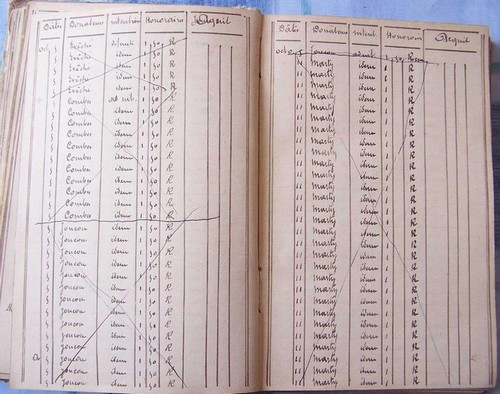 Date Donateurs intention Honoraire Acquit
oct 5 1 50 R
5 idem 1 50 R
5 idem 1 50 R
5 idem 1 50 R
5 idem 1 50 R
5 Combes ad int. 1 50 R
5 Combes idem 1 50 R
5 Combes idem 1 50 R
5 Combes idem 1 50 R
5 Combes idem 1 50 R
5 Combes idem 1 50 R
5 Combes idem 1 50 R
5 Combes idem 1 50 R
5 Combes idem 1 50 R
5 Combes idem 1 50 R
5 Combes idem 1 50 R
5 Joucou idem 1 50 R
5 Joucou idem 1 50 R
5 Joucou idem 1 50 R
5 Joucou idem 1 50 R
5 Joucou idem 1 50 R
5 Joucou idem 1 50 R
5 Joucou idem 1 50 R
5 Joucou idem 1 50 R
5 Joucou idem 1 50 R
5 Joucou idem 1 50 R
5 Joucou idem 1 50 R
5 Joucou idem 1 50 R
5 Joucou idem 1 50 R
5 Joucou idem 1 50 R
Date Donateurs intent. Honorair Acquit
oct 5 Joucou ad int. 1 50 R
11 Marty idem 1 R
11 Marty idem 1 R
11 Marty idem 1 R
11 Marty idem 1 R
11 Marty idem 1 R
11 Marty idem 1 R
11 Marty idem 1 R
11 Marty idem 1 R
11 Marty idem 1 R
11 Marty idem 1 R
11 Marty idem 1 R
11 Marty idem 1 R
11 Marty idem 1 R
11 Marty idem 1 R
11 Marty idem 1 R
11 Marty idem 1 R
11 Marty idem 1 R
11 Marty idem 1 R
11 Marty idem 1 R
11 Marty idem 1 R
11 Marty idem 1 R
11 Marty idem 1 R
11 Marty idem 1 R
11 Marty idem 1 R
11 Marty idem 1 R
11 Marty idem 1 R
11 Marty idem 1 R
11 Marty idem 1 R